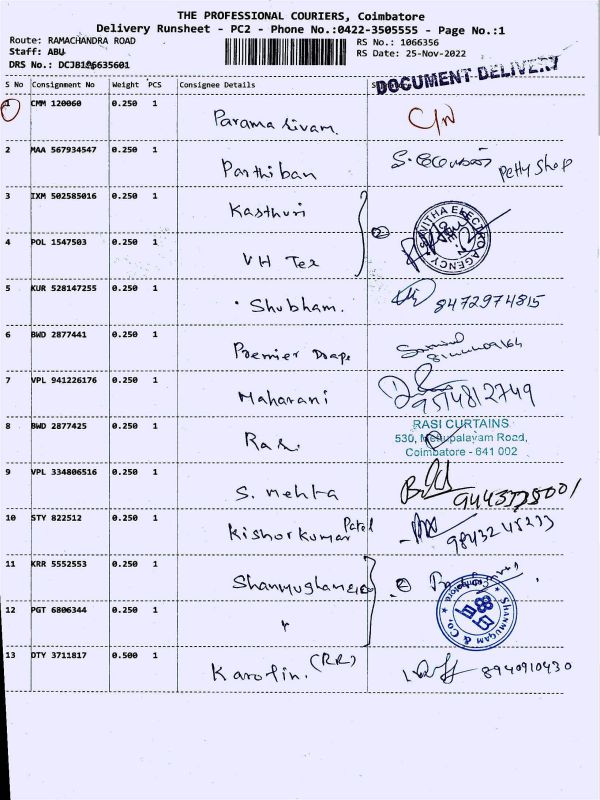 THE PROFESSIONAL COURIERS, Coimbatore
Delivery Runsheet - PC2 - Phone No.:0422-3505555 - Page No.:1
Route: RAMACHANDRA ROAD RS No.: 1066356
Staff: ABU RS Date: 25-Nov-2022
DRS No.: DCJB196635601
DOCUMENT DELIVERY
S No Consignment No Weight PCS Consignee Details S
1 CMM 120060 0.250 1 Parama sivam. C/N
2 MAA 567934547 0.250 1 Parthiban Petty Shop
3 IXM 502585016 0.250 1 Kasthuri
4 POL 1547503 0.250 1 VH Tex 2
5 KUR 528147255 0.250 1 Shubham. 8472974815
6 BWD 2877441 0.250 1 Premier Drape
7 VPL 941226176 0.250 1 Maharani 9514812749
8 BWD 2877425 0.250 1 Rasi
RASI CURTAINS
530, Mettupalayam Road,
Coimbatore - 641 002
9 VPL 334806516 0.250 1 S. Mehta
10 STY 822512 0.250 1 Kishorkumar Patel
11 KRR 5552553 0.250 1 2
SHANMUGAM & CO.
12 PGT 6806344 0.250 1
13 DTY 3711817 0.500 1 Karolin. (RR) 8940910430